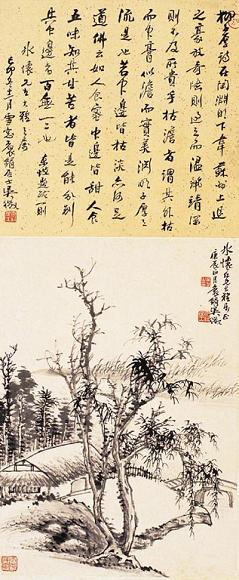 柳子厚詩在陶淵明下韋蘇州上退
之豪放奇險則過之而温麗靖深
則不及所貴乎枯澹者謂其外枯
而中膏似澹而實美淵明子厚之
流是也若中邊皆枯淡亦何足
道佛云如人食蜜中邊皆甜人食
五味知其甘苦者皆是能分别
其中邊者百無一二也 東坡題跋一則
冰懷先生大雅之屬
己卯年十二月雪窗袌鋗居士吳徵
冰懷先生雅屬正
庚辰四月袌鋗吳徵